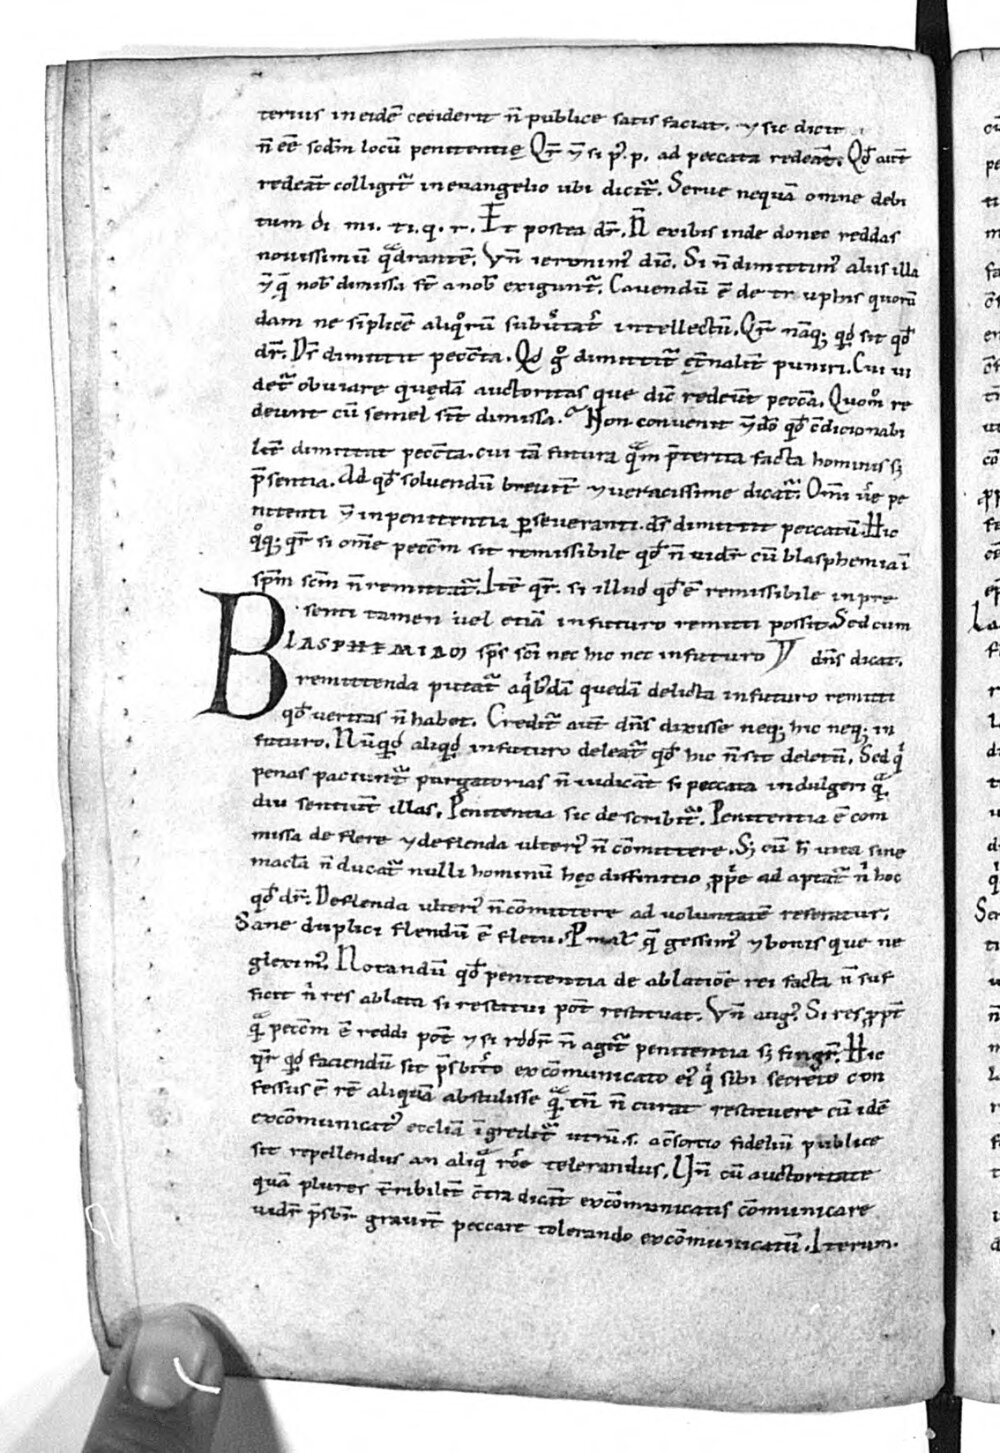 terius in eidē ceciderit n̄ publice satis faciat. ⁊ sic dicit
n̄ eē scdm̄ locū penitentię Qr̄ ⁊ si p̄. p. ad peccata redeāt. Qd̄ aut̄
redeāt colligit᷑ in euangelio ubi dicit᷑. Serue nequā omne debi
tum di mi. ti. q. r. Et postea dr̄. N̄ exibis inde donec reddas
nouissimū qᷓdrantē. Vn̄ ieronim᷒ dic̄. Si n̄ dimittim᷒ aliis illa
nob̄ dimissa st̄ a nob̄ exigunt᷑. Cauendū ē de quorū
dam ne simplicē aliqͦrū subūtat᷑ intellectū. Qr̄ nāq; qd̄ sit qd̄
dr̄. Dr̄ dimittit peccāta. Qd̄ gͦ dimittit᷑ puniri. Cui ui
det᷑ obuiare quędā auctoritas que dic̄ redeūt pecc̄a. Quomͦ re
deunt cū semel st̄ dimissa. Non conuenit qd̄ c̄dicionabi
lit̄ dimittat peccāta. cui tā futura qᷓm p̄terita facta hominis s;
p̄sentia. Ad qd̄ soluendū breuit̄ ⁊ ueracissime dicat᷑. Omī ūe pe
nitenti ⁊ in penitentia p̱seueranti. ds̄ dimittit peccatū. Hic
qͦq; qr̄ si om̄e pecc̄m sit remissibile qd̄ n̄ uidr̄ cū blasphemia ī
sp̄m sc̄m n̄ remittat᷑. Itē qr̄. si illud qd̄ ē remissibile in pre
senti tamen uel etiā in futuro remitti possit. Sed cum
BLASPHEMIA sp̄s sc̄i nec hic nec in futuro dn̄s dicat.
remittenda putat᷑ a qͥb᷒dā quedā delicta in futuro remitti
qd̄ ueritas n̄ habet. Credit᷑ aut̄ dn̄s dixisse neq; hic neq; in
futuro. Nūqͥd aliqͥd in futuro deleat᷑ qd̄ hic n̄ sit deletū. Sed qͥ
penas paciunt᷑ purgatorias n̄ iudicāt si peccata indulgeri qᷓ
diu sentiūt illas. Penitentia sic describit᷑. Penitentia ē com
missa deflere ⁊ deflenda ulteri᷒ n̄ cōmittere. S; cū h̄ uita sine
mac̄la n̄ ducat᷑ nulli hominū hęc diffinitio pp̄e adaptat᷑ nͥ hoc
qd̄ dr̄. Deflenda ulteri᷒ n̄ cōmittere ad uoluntatē referatur.
Sane duplici flendū ē fletu. P mal̄ q̄ gessim᷒ ⁊ bonis que ne
glexim᷒. Notandū qd̄ penitentia de ablatiōe rei facta n̄ suf
ficit nͥ res ablata si restitui pot̄ restituat. Vn̄ aug᷒ Si res ppt̄
qᷓ pecc̄m ē reddi pot̄ ⁊ si n̄ agit᷑ penitentia s; fingit᷑. Hic
qr̄ qd̄ faciendū sit p̄sbit̄o excōmunicato ei᷒ qͥ sibi secreto con
fessus ē rē aliquā abstulisse qᷓ tn̄ n̄ curat restituere cū idē
excōmunicat᷒ eccliā īgredit᷑ utrū. s. a c̄sortio fideliū publice
sit repellendus an aliqᷓ rōe tolerandus. Vn̄ cū auctoritate
quā plures t̄ribilit̄ c̄tra dicāt excōmunicatis cōmunicare
uidr̄ p̄sbr̄ grauit̄ peccare tolerando excōmunicatū. Iterum.